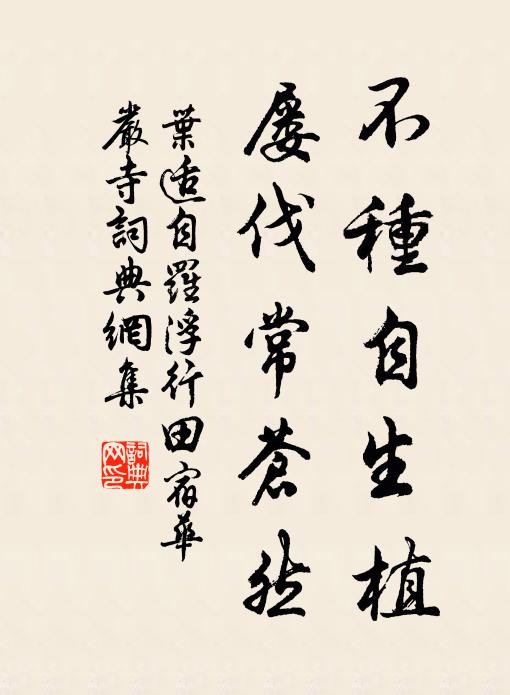 不種自生植
屡伐常蒼然
葉適自羅浮行田宿華
嚴寺詞典網集
詞典
网印